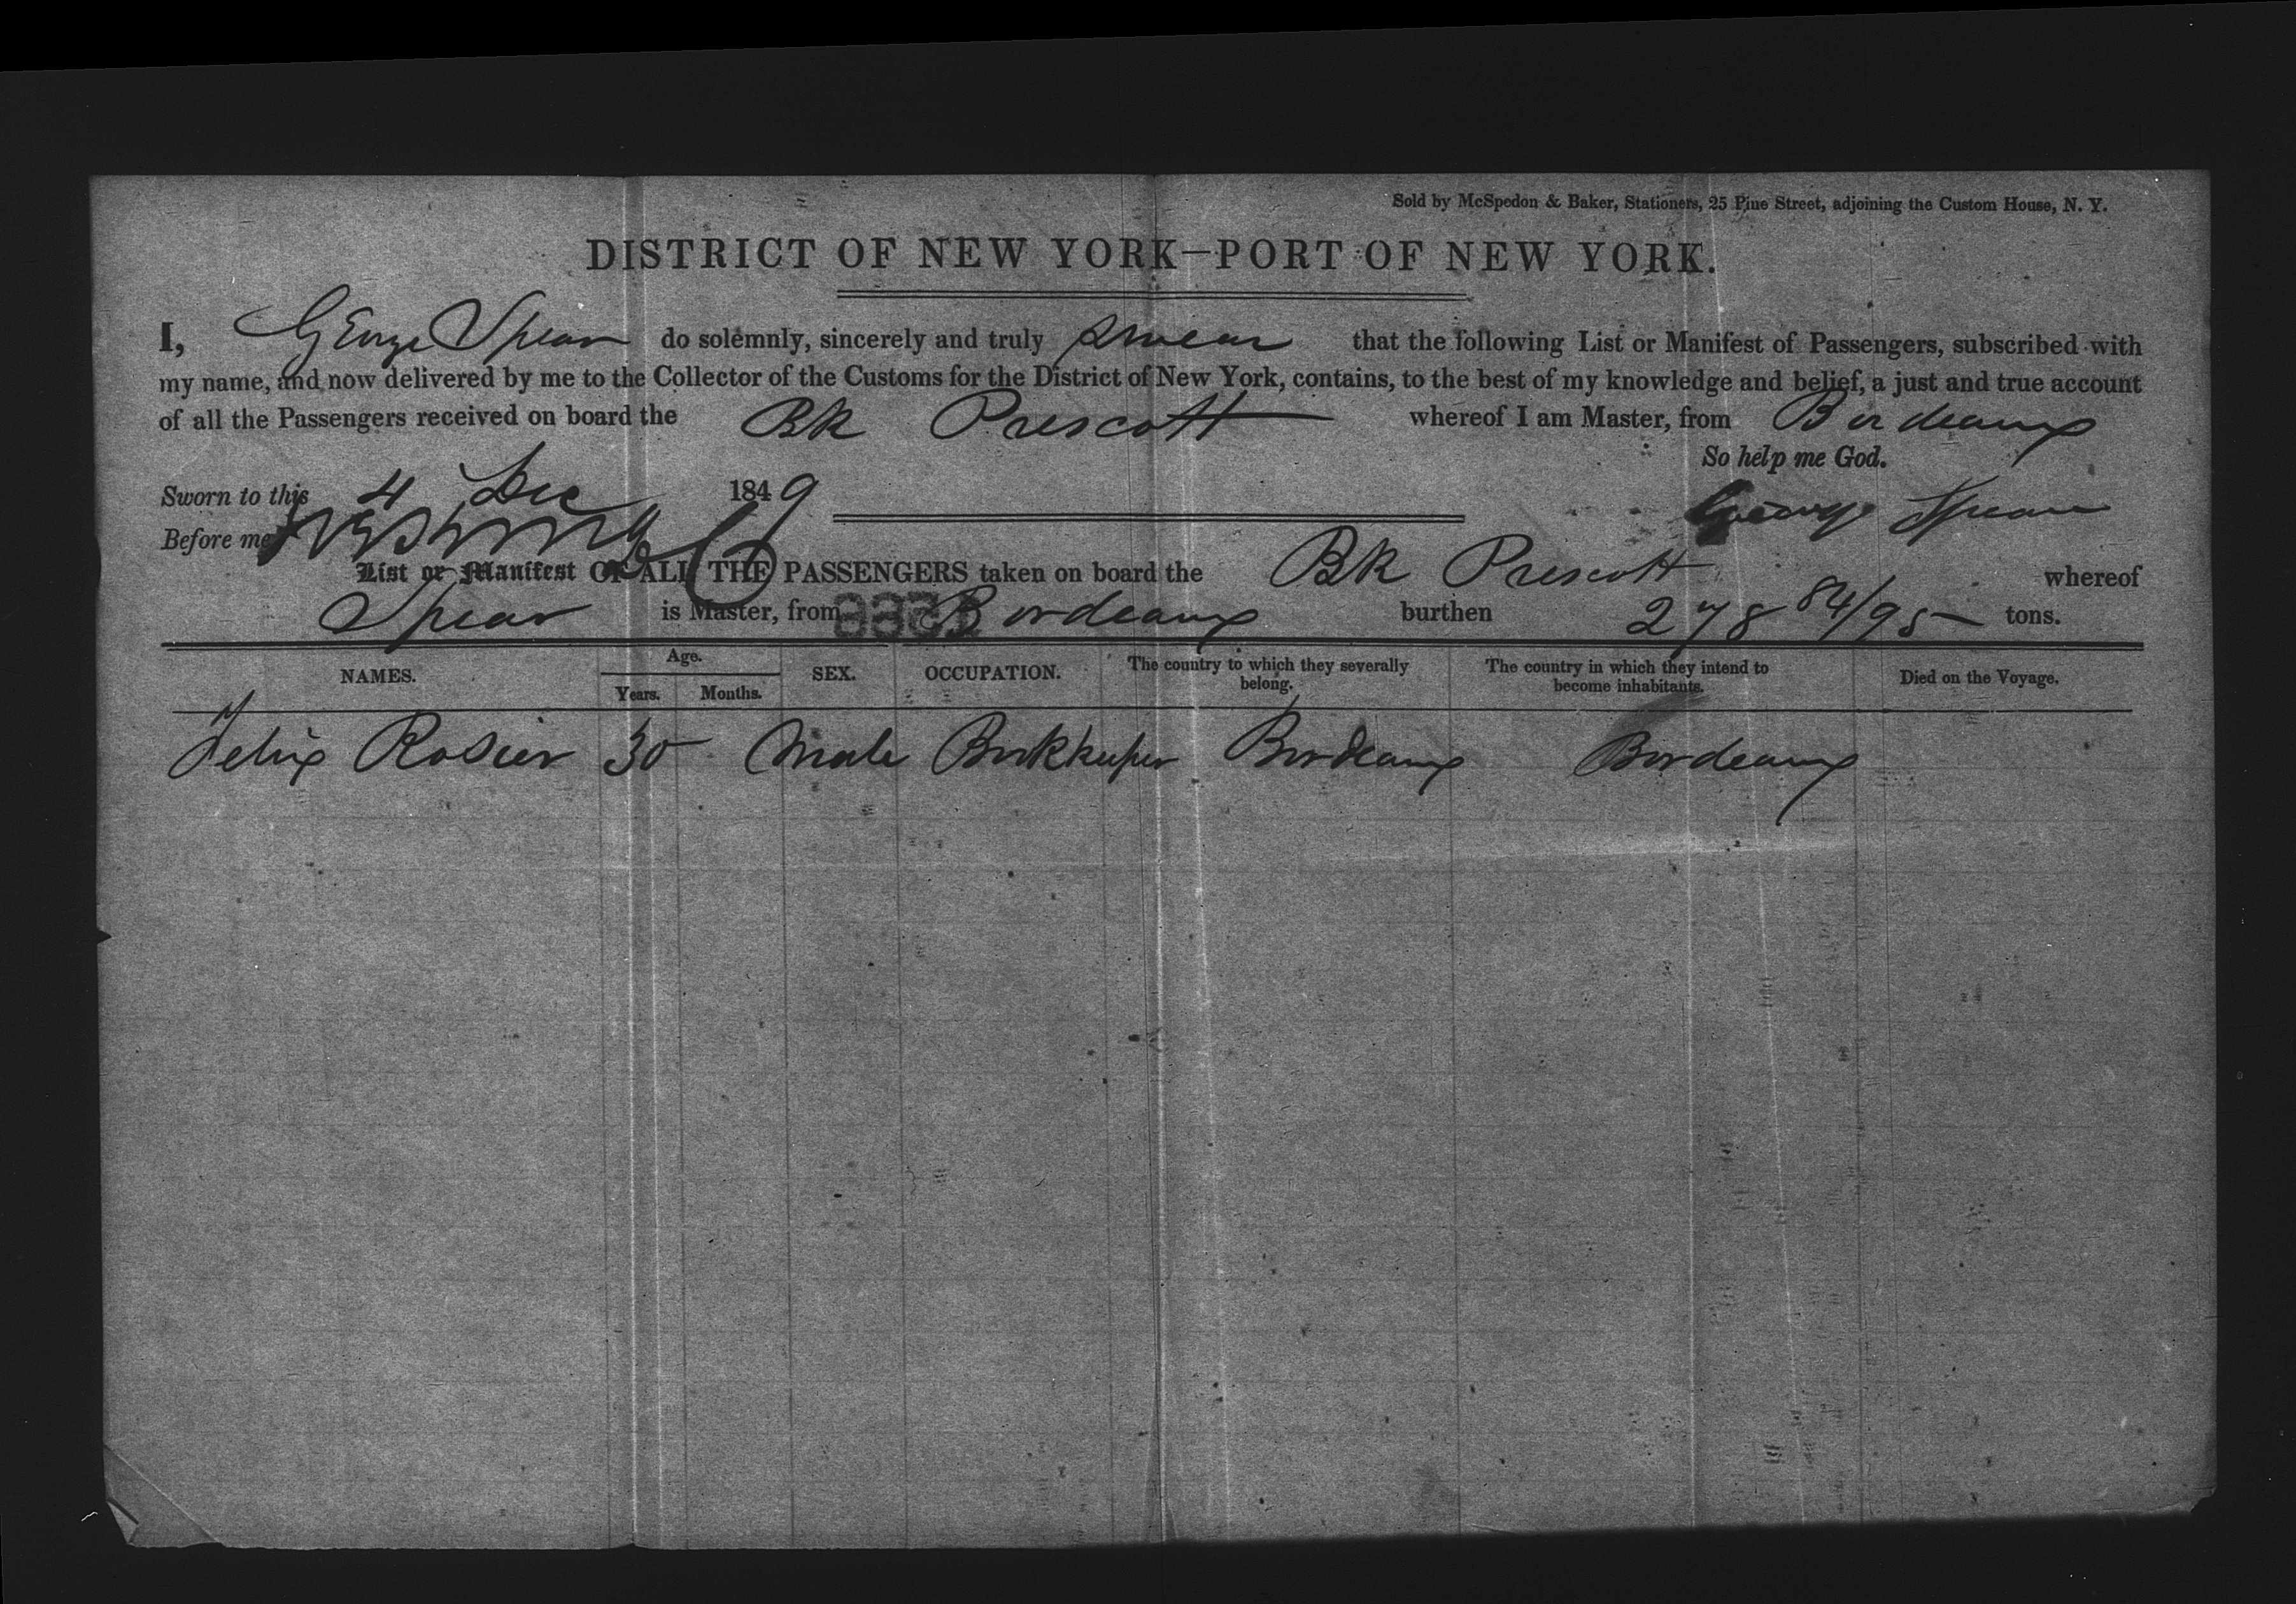 Sold by McSpedon & Baker, Stationers, 25 Pine Street, adjoining the Custom House, N. Y.
DISTRICT OF NEW YORK—PORT OF NEW YORK.
I, George Spear do solemnly, sincerely and truly swear that the following List or Manifest of Passengers, subscribed with
my name, and now delivered by me to the Collector of the Customs for the District of New York, contains, to the best of my knowledge and belief, a just and true account
of all the Passengers received on board the Bk Prescott whereof I am Master, from Bordeaux
So help me God.
Sworn to this 4 Dec 1849
George Spear
Before me
List or Manifest OF ALL THE PASSENGERS taken on board the Bk Prescott whereof
Spear is Master, from Bordeaux burthen 278 84/95 tons.
NAMES. Age. Years. Months. SEX. OCCUPATION. The country to which they severally belong. The country in which they intend to become inhabitants. Died on the Voyage.
Felix Rosier 30 Male Bookkeeper Bordeaux Bordeaux